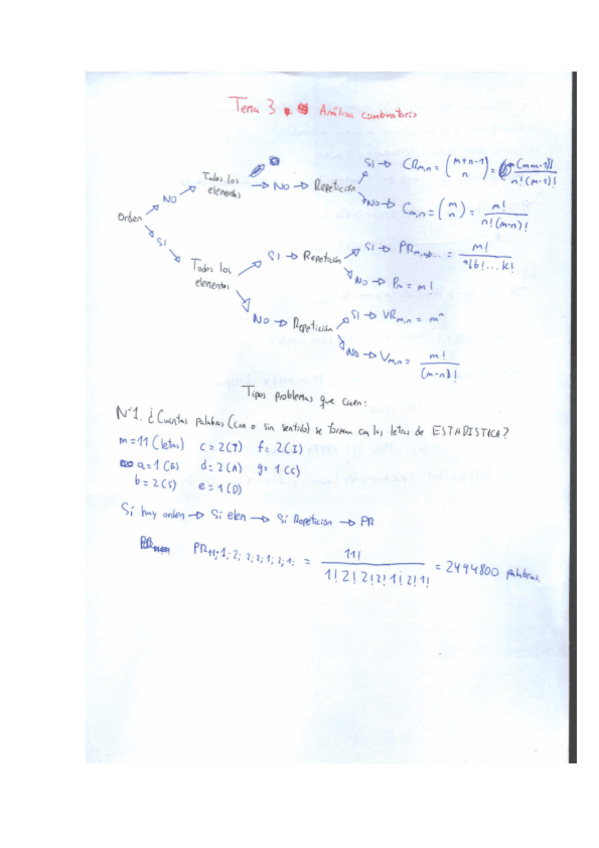 Tema 3 Análisis combinatorio
SI → CRm,n = (m+n-1 n) = (m+n-1)! / n!(m-1)!
Todos los elementos → NO → Repetición
NO
NO → Cm,n = (m n) = m! / n!(m-n)!
Orden
SI
SI → Repetición
SI → PRm,a,b... = m! / a!b!...k!
Todos los elementos
NO → Pm = m!
NO → Repetición
SI → VRm,n = mⁿ
NO → Vm,n = m! / (m-n)!
Tipos problemas que caen:
Nº1. ¿Cuantas palabras (con o sin sentido) se forman con las letras de ESTADISTICA?
m = 11 (letras) c = 2(T) f = 2(I)
a = 1(E) d = 2(A) g = 1(C)
b = 2(S) e = 1(D)
Sí hay orden → Sí elem → Sí Repetición → PR
PR11;1;2;2;2;1;2;1; = 11! / 1!2!2!2!1!2!1! = 2494800 palabras.